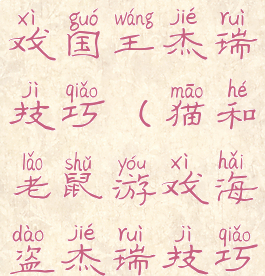 xì guó wáng jié ruì
戏国王杰瑞
jì qiǎo māo hé
技巧（猫和
lǎo shǔ yóu xì hǎi
老鼠游戏海
dào jié ruì jì qiǎo
盗杰瑞技巧